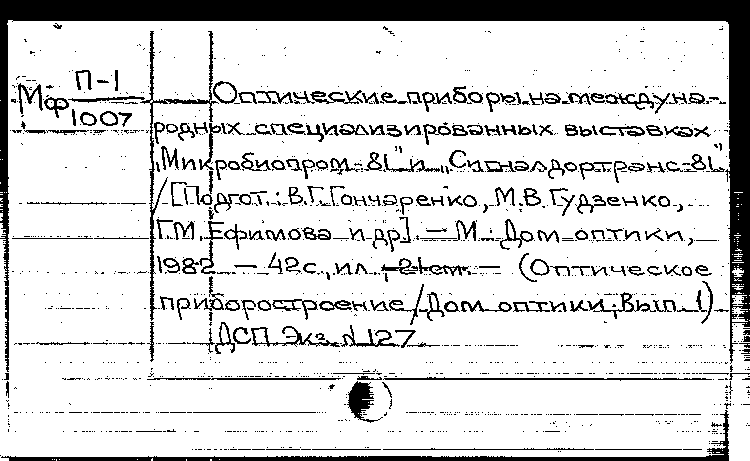 Мф П-1
1007
Оптические приборы на междуна-
родных специализированных выставках
"Микробиопром-81" и "Сигналдортранс-81"
/[Подгот.: В.Г.Гончаренко, М.В.Гудзенко,
Г.М.Ефимова и др]. — М.: Дом оптики,
1982 — 42с, ил, 21 см. — (Оптическое
приборостроение /Дом оптики; Вып. 1)
ДСП Экз. N 127